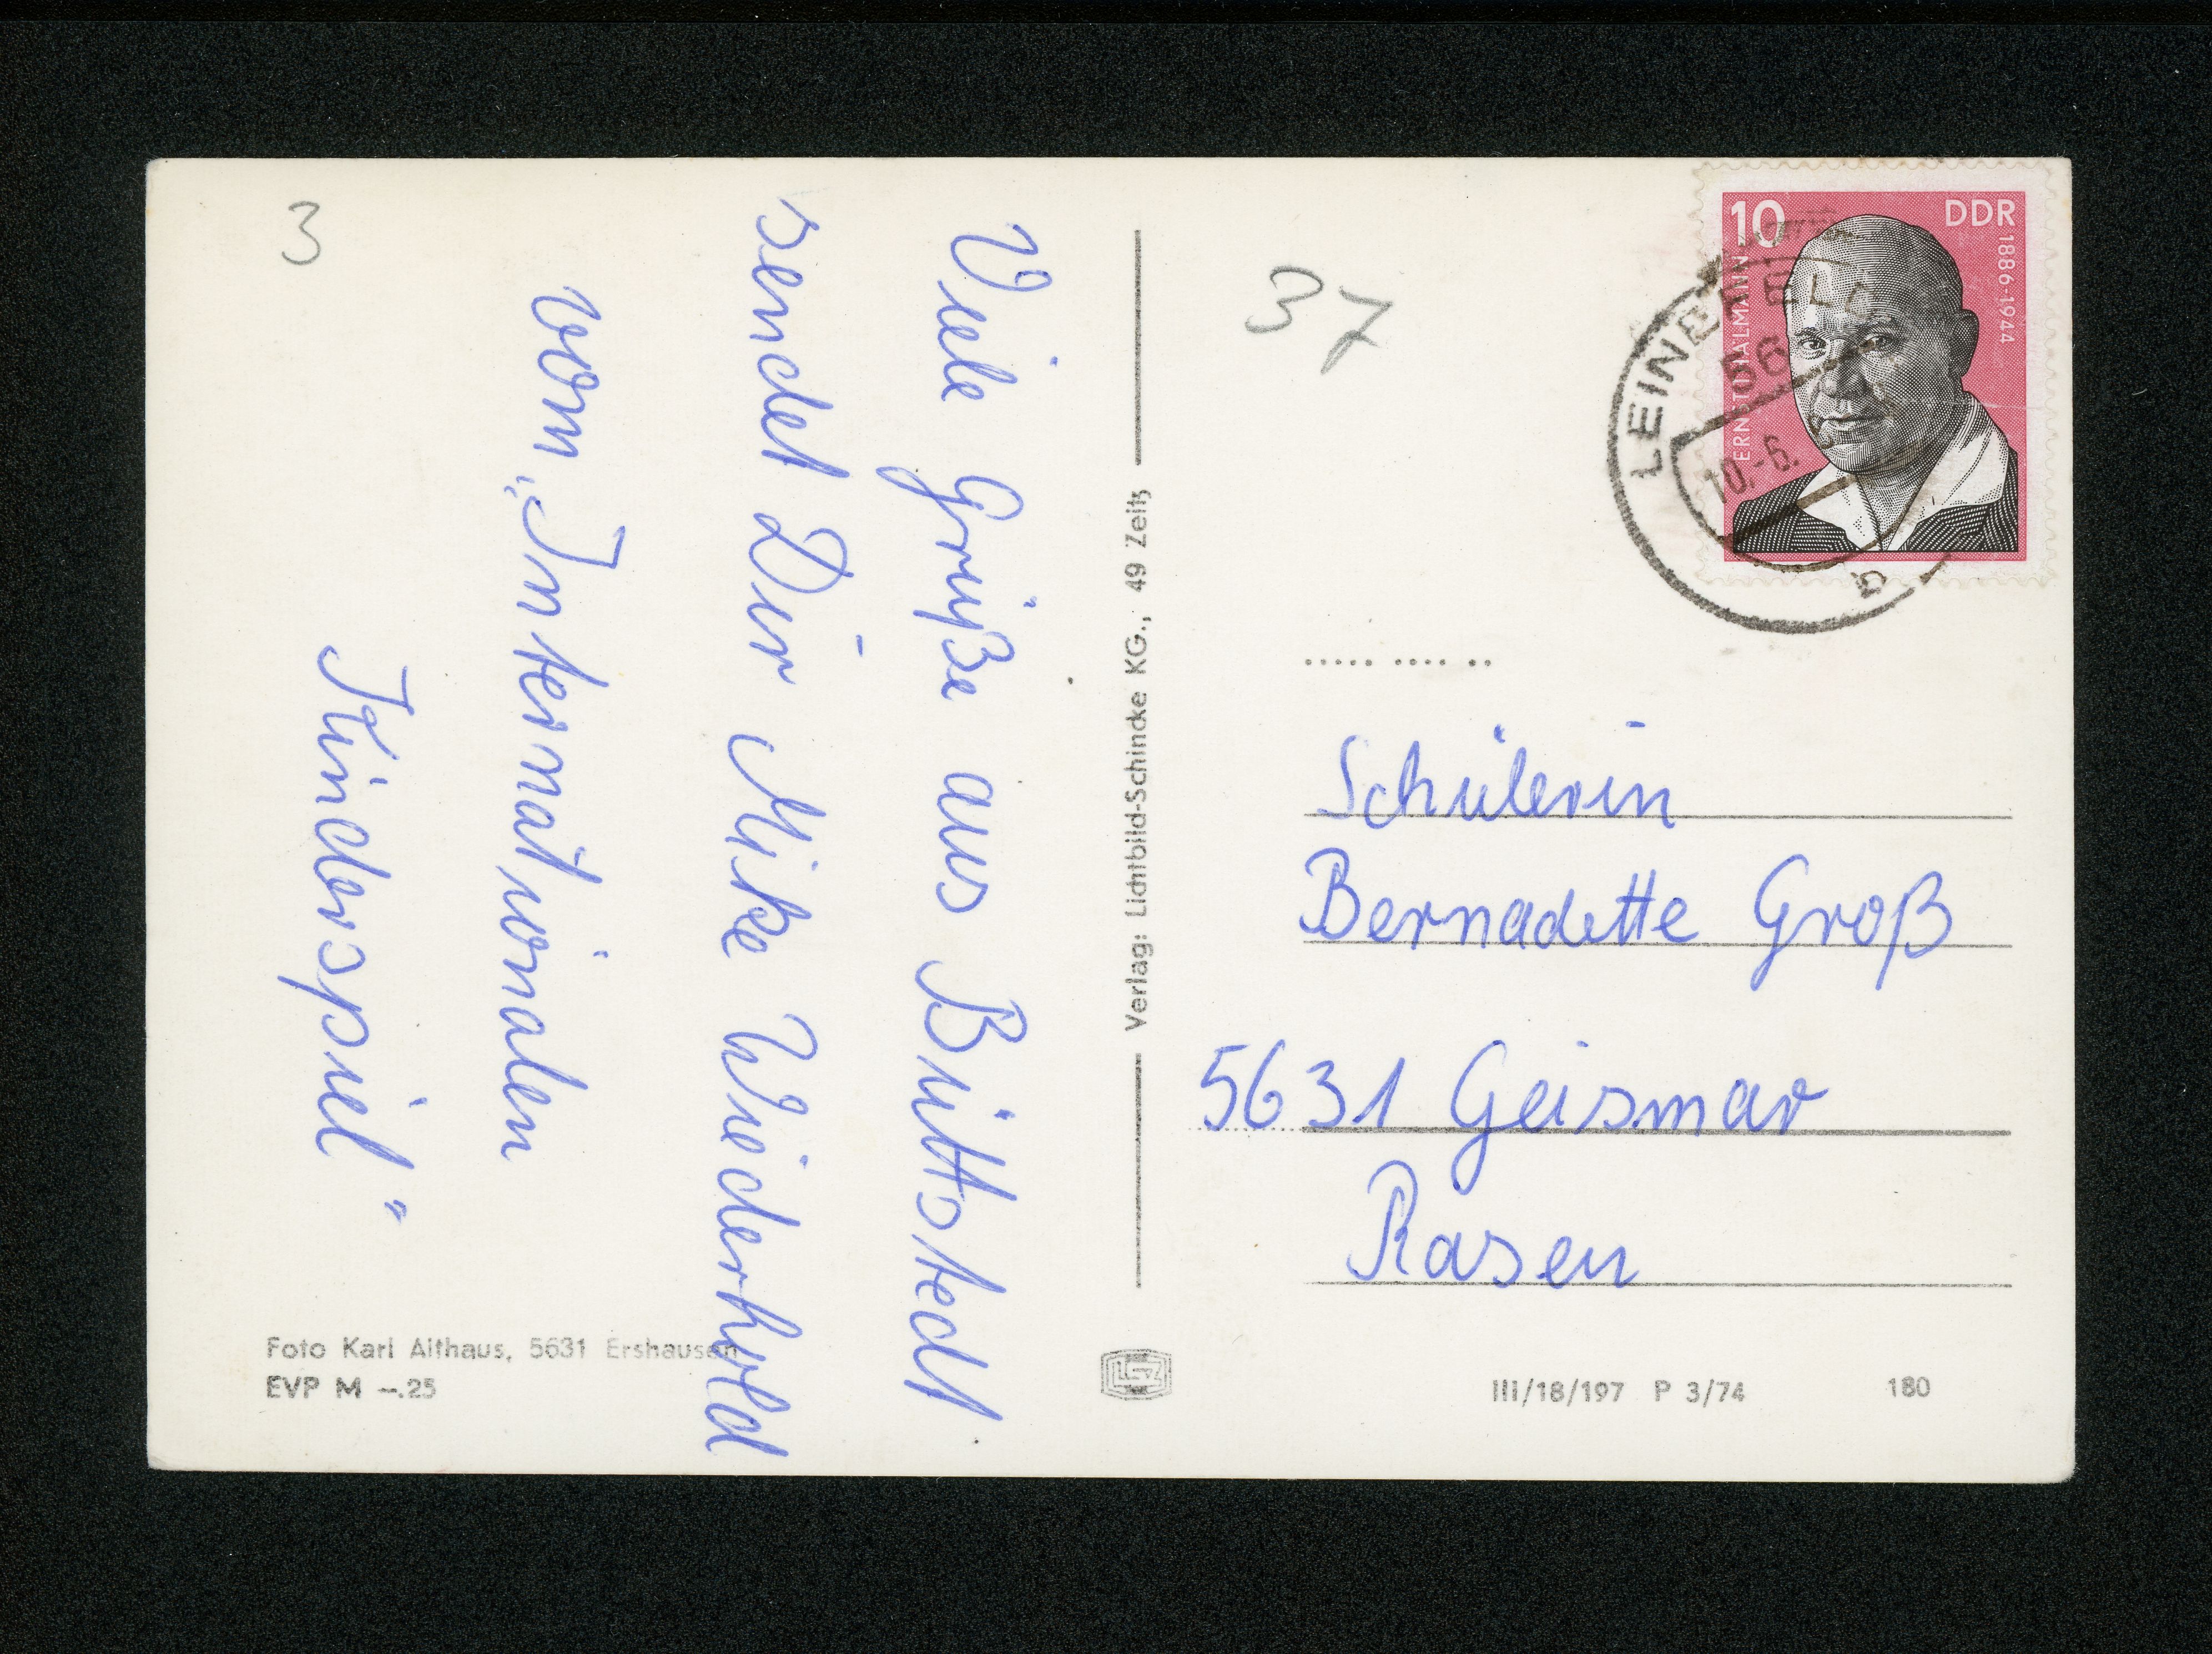 3
Viele Grüße aus Büttstedt
sendet Dir Mike Wiederhold
vom „Internationalen
Kinderspiel"
Foto Karl Althaus, 5631 Ershausen
EVP M –.25
Verlag: Lichtbild-Schincke KG., 49 Zeitz
37
10 DDR
ERNST THÄLMANN 1886-1944
LEINEFELDE
56
10.-6.
Schülerin
Bernadette Groß
5631 Geismar
Rasen
III/18/197 P 3/74 180